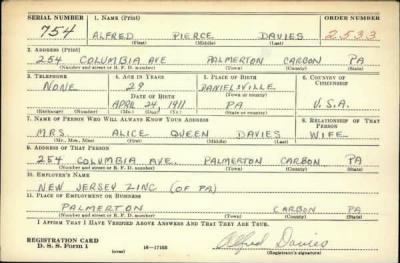 SERIAL NUMBER 1. NAME (Print) ORDER NUMBER
754 ALFRED PIERCE DAVIES 2533
(First) (Middle) (Last)
2. ADDRESS (Print)
254 COLUMBIA AVE PALMERTON CARBON PA
(Number and street or R. F. D. number) (Town) (County) (State)
3. TELEPHONE 4. AGE IN YEARS 5. PLACE OF BIRTH 6. COUNTRY OF CITIZENSHIP
NONE 29 DANIELSVILLE
DATE OF BIRTH (Town or county)
APRIL 24, 1911 PA U.S.A.
(Exchange) (Number) (Mo.) (Day) (Yr.) (State or country)
7. NAME OF PERSON WHO WILL ALWAYS KNOW YOUR ADDRESS 8. RELATIONSHIP OF THAT PERSON
MRS. ALICE QUEEN DAVIES WIFE
(Mr., Mrs., Miss) (First) (Middle) (Last)
9. ADDRESS OF THAT PERSON
254 COLUMBIA AVE. PALMERTON CARBON PA
(Number and street or R. F. D. number) (Town) (County) (State)
10. EMPLOYER'S NAME
NEW JERSEY ZINC (OF PA)
11. PLACE OF EMPLOYMENT OR BUSINESS
PALMERTON CARBON PA
(Number and street or R. F. D. number) (Town) (County) (State)
I AFFIRM THAT I HAVE VERIFIED ABOVE ANSWERS AND THAT THEY ARE TRUE.
REGISTRATION CARD
D. S. S. Form 1 (over) 16—17105 Alfred Davies
(Registrant's signature)